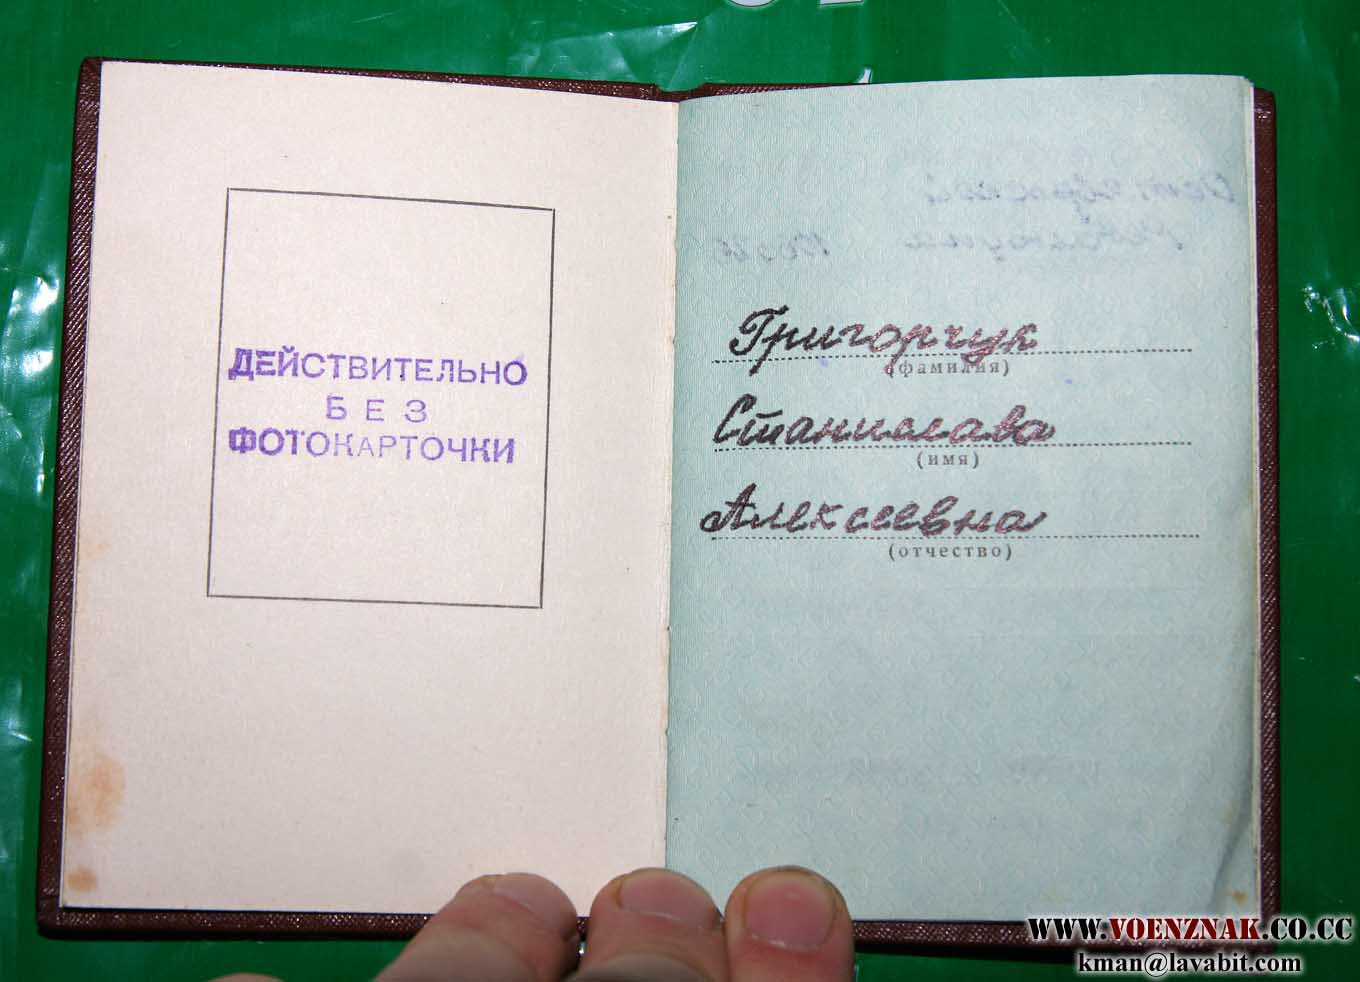 ДЕЙСТВИТЕЛЬНО
БЕЗ
ФОТОКАРТОЧКИ
Григорчук
(фамилия)
Станислава
(имя)
Алексеевна
(отчество)
WWW.VOENZNAK.CO.CC
kman@lavabit.com